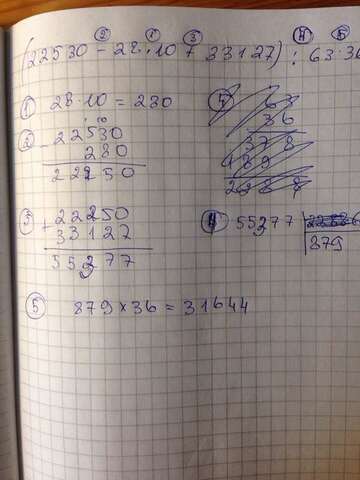 (22530 - 28·10 + 33127) : 63·36
① 28·10 = 230
② 22530
- 280
22250
③ 22250
+ 33127
55377
④ 55377
879
⑤ 879 × 36 = 31644